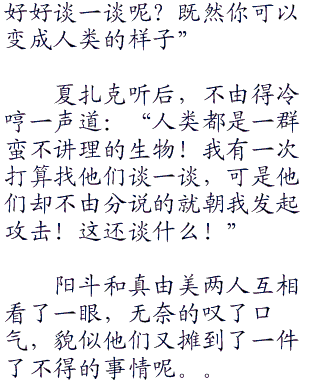 好好谈一谈呢？既然你可以
变成人类的样子”
夏扎克听后，不由得冷
哼一声道：“人类都是一群
蛮不讲理的生物！我有一次
打算找他们谈一谈，可是他
们却不由分说的就朝我发起
攻击！这还谈什么！”
阳斗和真由美两人互相
看了一眼，无奈的叹了口
气，貌似他们又摊到了一件
了不得的事情呢。。